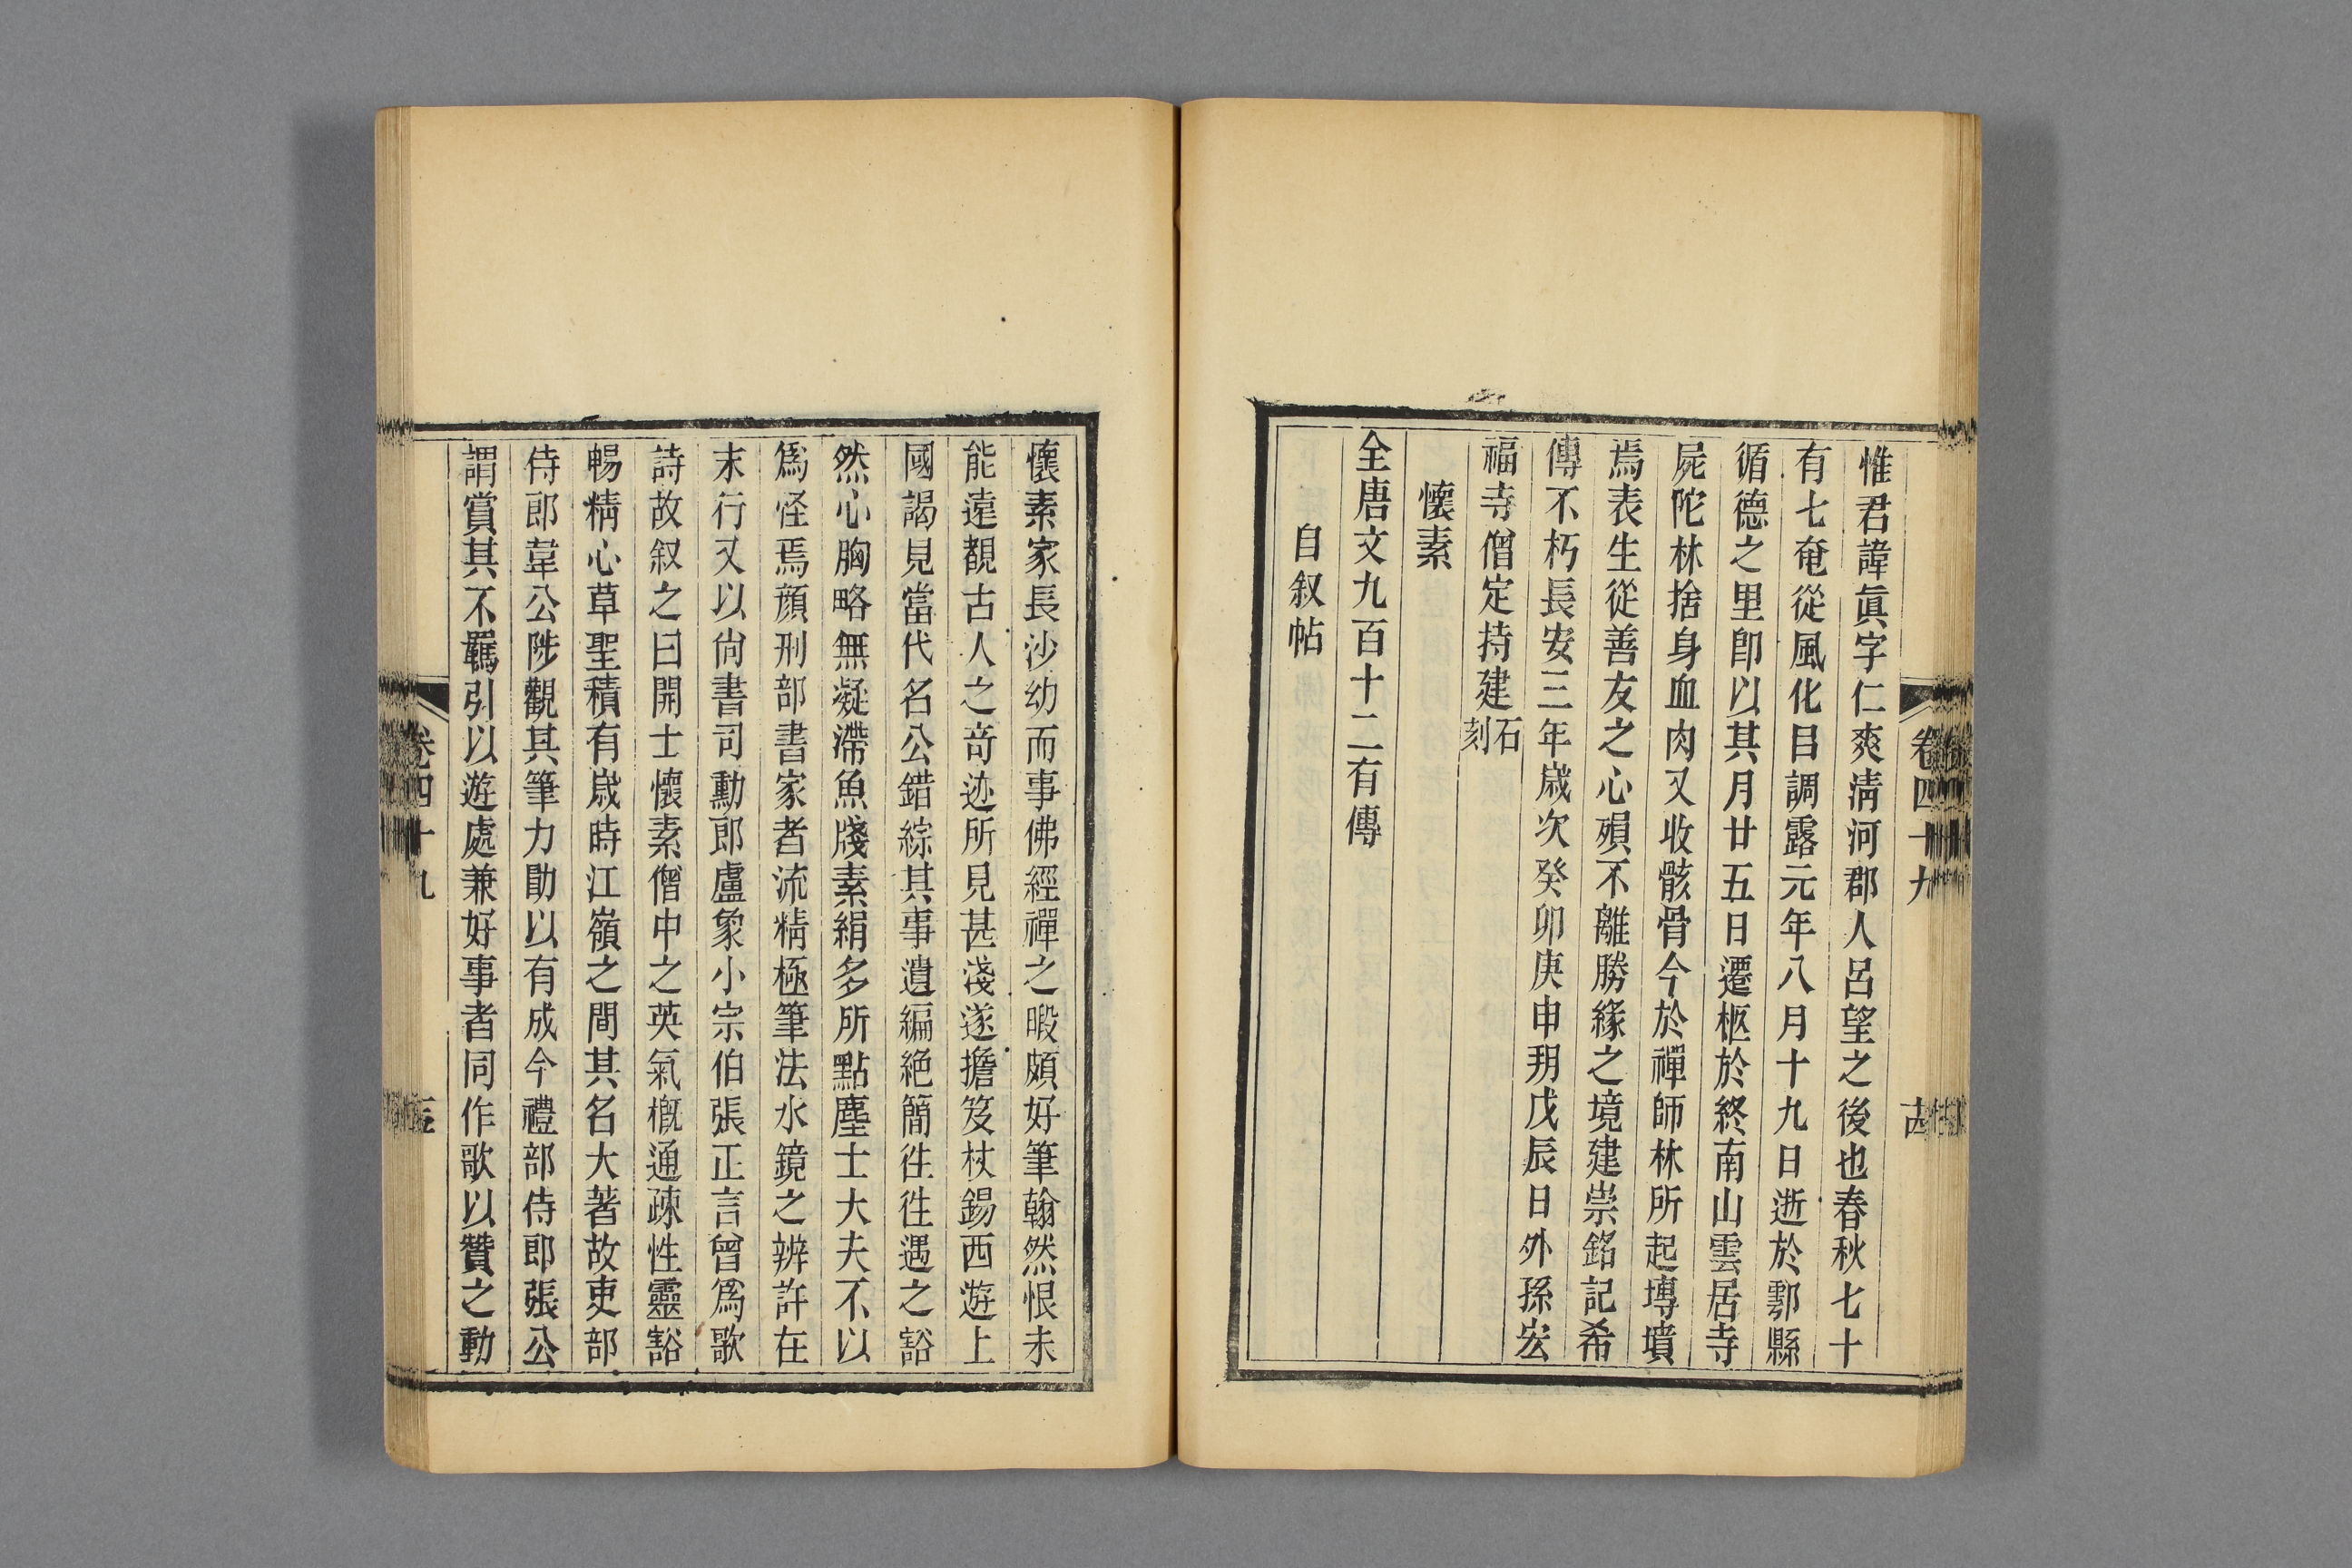 惟君諱眞字仁爽淸河郡人呂望之後也春秋七十
有七奄從風化㠯調露元年八月十九日逝於鄠縣
循德之里卽以其月廿五日遷柩於終南山雲居寺
屍陀林捨身血肉又收骸骨今於禪師林所起塼墳
焉表生從善友之心殞不離勝緣之境建崇銘記希
傳不朽長安三年嵗次癸卯庚申玥戊辰日外孫宏
福寺僧定持建石刻
懷素
全唐文九百十二有傳
自叙帖
卷四十九
古
懷素家長沙幼而事佛經禪之暇頗好筆翰然恨未
能遠覩古人之竒迹所見甚淺遂擔笈杖錫西遊上
國謁見當代名公錯綜其事遺編絶簡徃徃遇之豁
然心胸略無凝滯魚牋素絹多所點塵士大夫不以
爲怪焉顔刑部書家者流精極筆法水鏡之辨許在
末行又以尙書司勳郎盧象小宗伯張正言曾爲歌
詩故叙之曰開士懷素僧中之英氣槪通疎性靈豁
暢精心草聖積有嵗時江嶺之間其名大著故吏部
侍郎韋公陟觀其筆力勖以有成今禮部侍郎張公
謂賞其不羈引以遊處兼好事者同作歌以贊之動
卷四十九